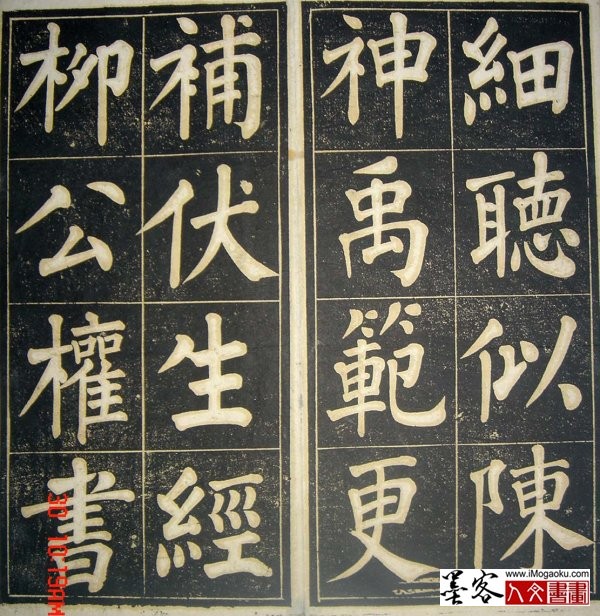 細聽似陳
神禹範更
補伏生經
柳公權書
墨客
www.iMogaoku.com
人文書畫